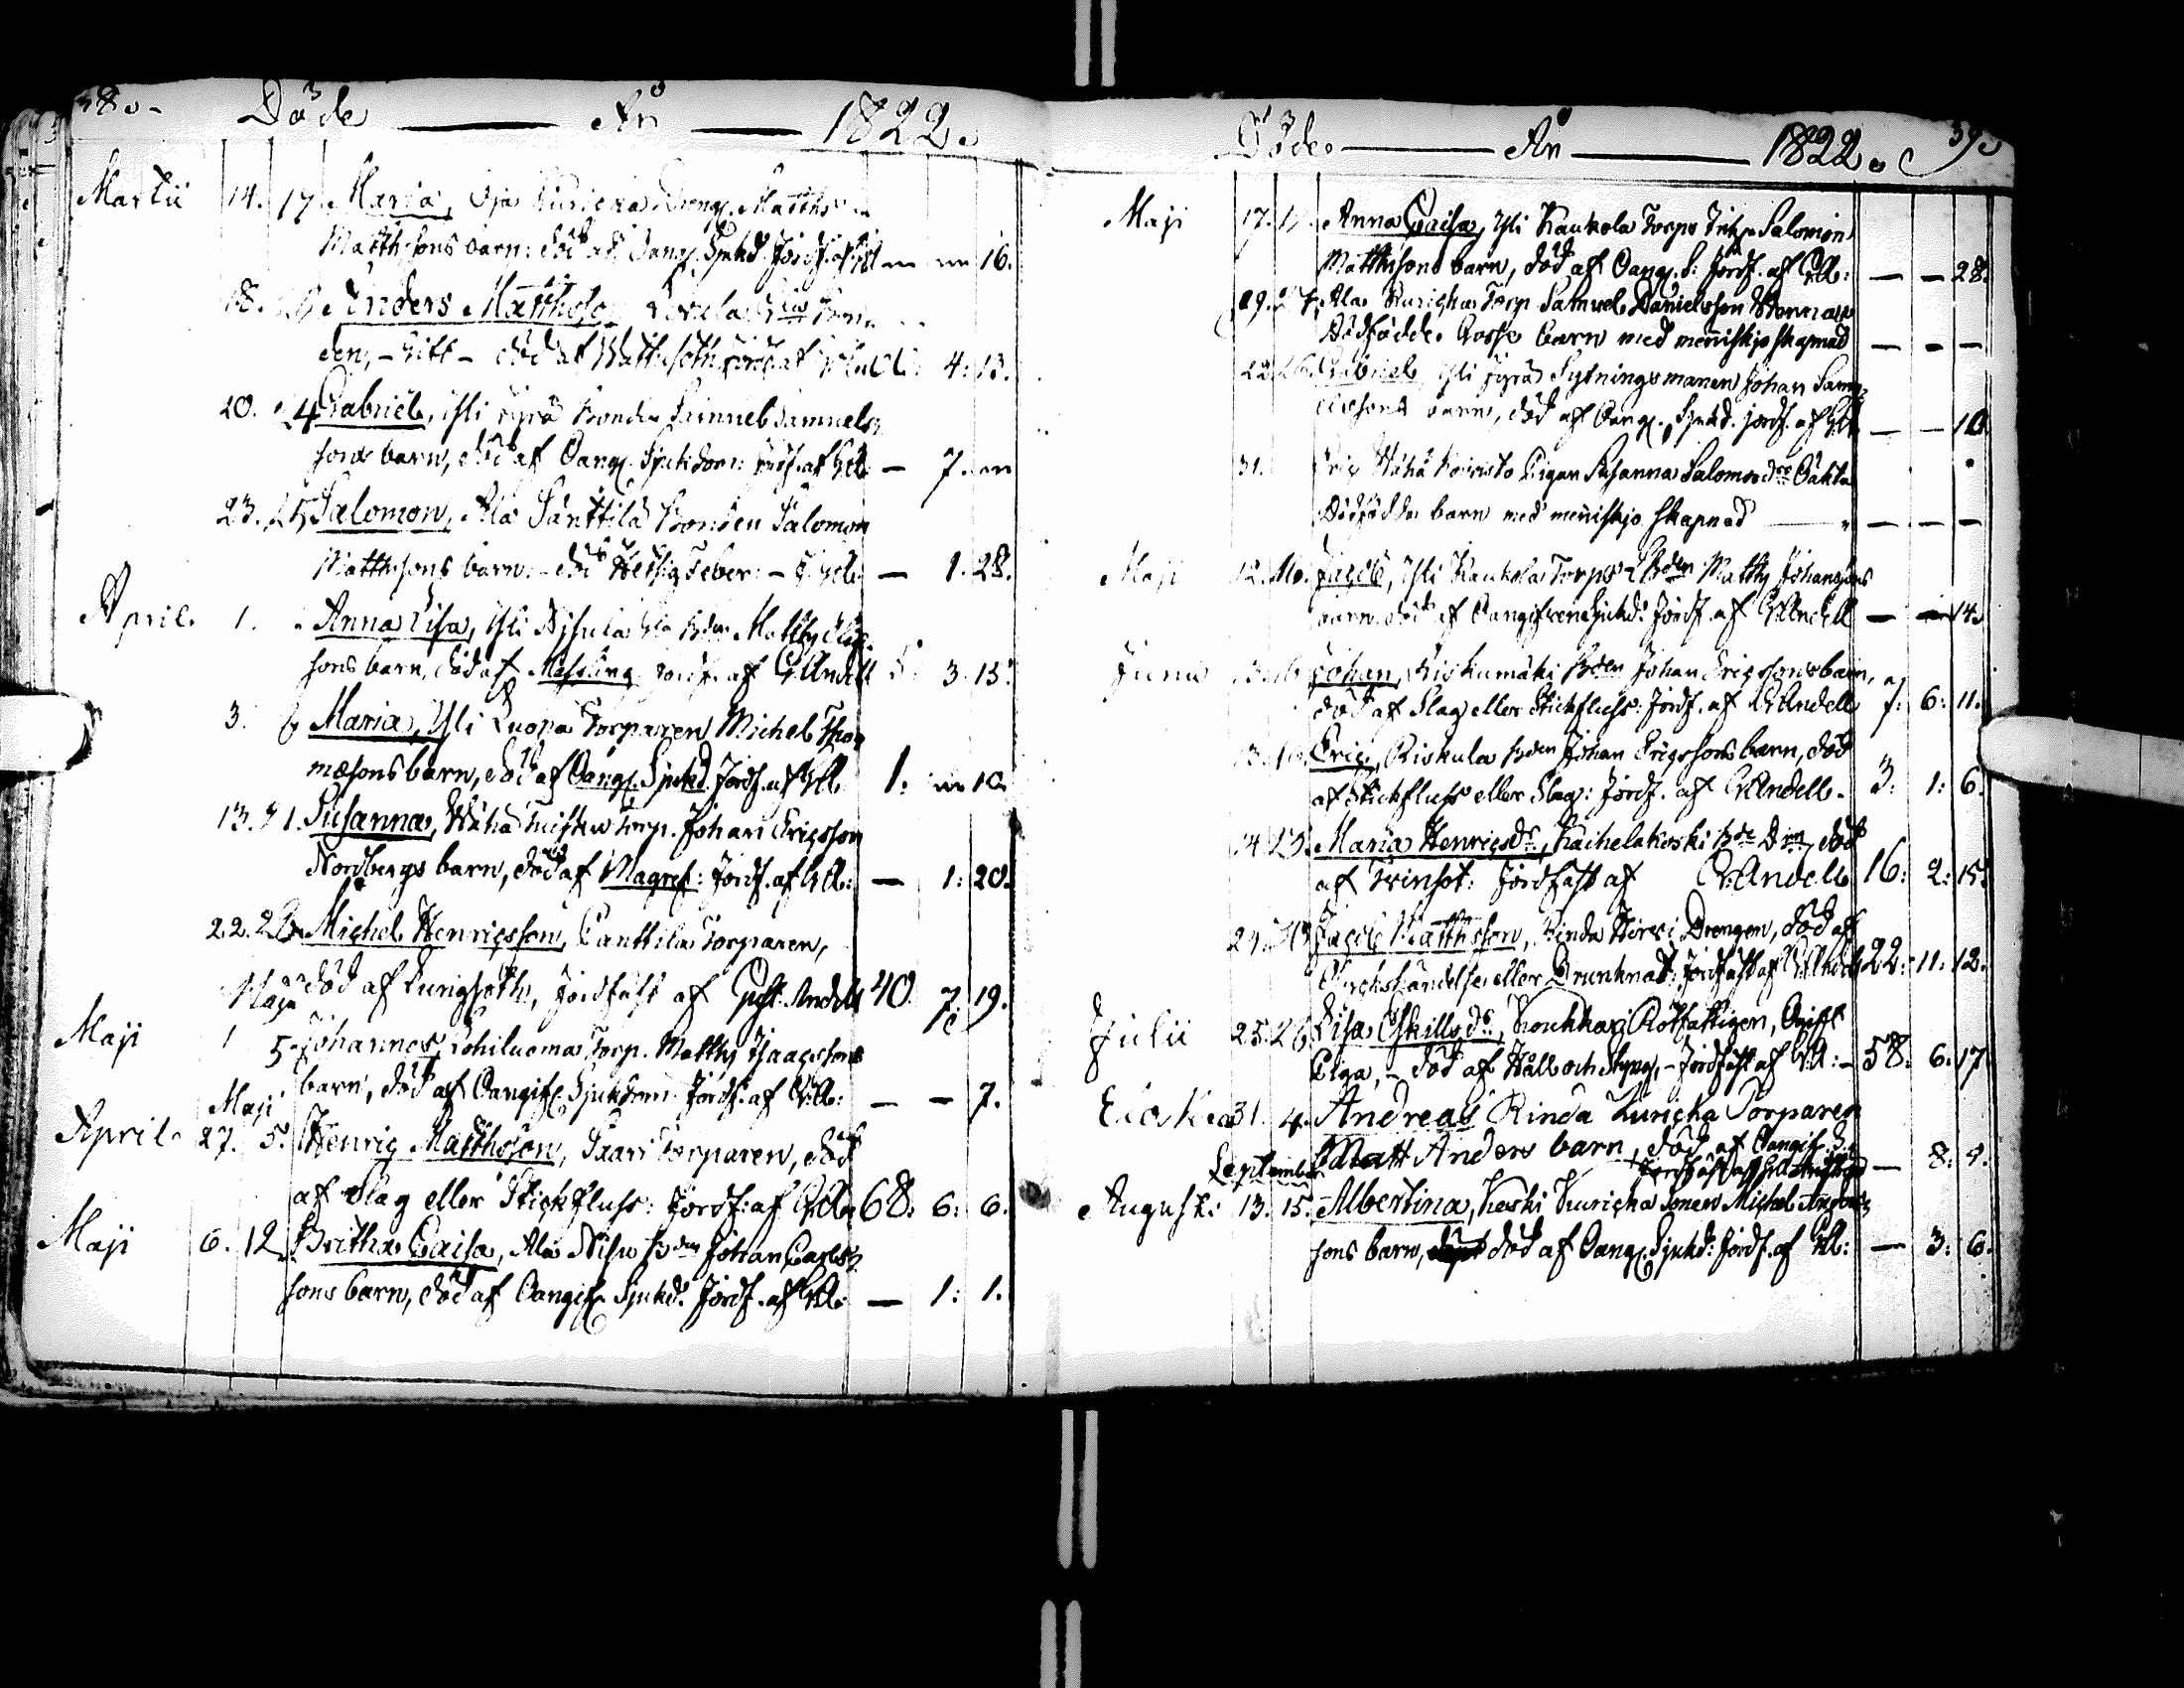 38.
Döde — År — 1822.
Martii 14. 17. Maria, Oja Kuricka Dreng. Matths
Matthssons barn: död af Oang. Sjukd. Jordf. af — — 16.
18. Anders Matthsson
den, - Gift - död af Wattusoth Jordf. af 4: 13.
20. 24 Gabriel, Yli Jyrä Bonden Samuel Samuels
sons barn, död af Oang. Sjukdom: Jordf. af GA: — 7. —
23. 25 Salomon, Ala Panttila Bonden Salomon
Matthssons barn. - död Hetsig Feber. - — 1. 28.
April. 1. Anna Lisa, Yli
sons barn, död af Messling. Jordf. af G. Andell 5. 3. 15.
3. 6 Maria, Yli Luopa Torparen Michel Tho
mæsons barn, död af Oang. Sjukd. Jordf. af GA: 1. — 10.
13. 21. Susanna, Wähä Torp. Johan Ericsson
Nordbergs barn, död af Magref: Jordf. af GA: — 1: 20.
22. 23 Michel Henricsson, Panttila Torparen,
död af Lungsoth, Jordfäst af Gust. Andell 40. 7. 19.
Maji
Maji 1 5. Johannes, Lohiluoma Torp. Matths Isaacssons
barn, död af Oangif. Sjukdom Jordf. af GA: — — 7.
Maji
April. 27. 5. Henric Matthsson, Saari Torparen, död
af Slag eller Stickfluss: Jordf: af GA: 68. 6: 6.
Maji 6. 12 Britha Caisa, Ala Nisu Bden Johan Carls
sons barn, död af Oangif. Sjukd. Jordf. af GA: — 1: 1.
39.
Döde. — År — 1822.
Maji 17. Anna Caisa, Yli Kaukola Torps Salomon
Matthssons barn, död af Oang. S: Jordf. af GA: — — 28.
19. Ala Kuricka Torp. Samuel Danielsson
Dödfödde Gosse barn med menniskjo skapnad — — —
22. 26. Gabriel Yli Jyrä Sytningsmanen Johan Sam
elssons barn, död af Oang. Sjukd. jordf. af GA: — — 10.
31. Pigan Susanna Salomonsdr Oäkta
Dödfödda barn med menniskjo skapnad — — —
Maji 12. 16. Jacob, Yli Kaukola Torps Bden Matths Johanssons
barn död af Oangifven Sjukd. Jordf. af G. Andell — — 14.
Junii 13. 16 Johan, Riskumäki Bden Johan Ericssons barn,
död af Slag eller Stickfluss: Jordf. af G. Andell 7: 6: 11.
13. 16. Eric, Riskula Bden Johan Ericssons barn, död
af Stickfluss eller Slag: Jordf. af G. Andell. 3: 1: 6.
14. 23. Maria Henricsdr, Kaihelakoski död
af Trinsot: Jordfäst af G. Andell 16: 2: 15.
24. 30 Jacob Matthsson, Rinda Hirvi Drengen, död af
Olyckshändelse eller Drunknat: Jordfäst af G. Andell 22: 11: 12.
Julii 25. 28 Lisa Eskillsdr, Koukkari Rotfattigen, Ogift
Piga, - död af Håll och Styng, - Jordfäst af GA: - 58. 6. 17.
31. 4. Andreas Rinda Kuricka Torparen
Matt Anders barn, död af Oangif. S:
September Jordfäst af — 8. 4.
Augusti 13. 15. Albertina, Keski Kuricka sonen Michel Anders
sons barn, död af Oang. Sjukd: Jordf. af GA: — 3: 6.